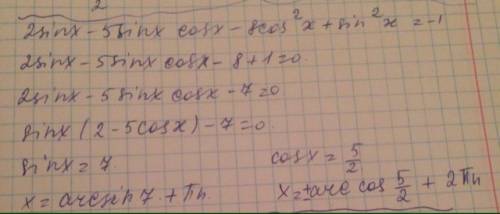 2
2sinx - 5sinx cosx - 8cos²x + sin²x = -1
2sinx - 5sinx cosx - 8 + 1 = 0.
2sinx - 5sinx cosx - 7 = 0
sinx (2 - 5cosx) - 7 = 0
sinx = 7 cosx = 5/2
x = arcsin 7 + πn. x = ±arc cos 5/2 + 2πn